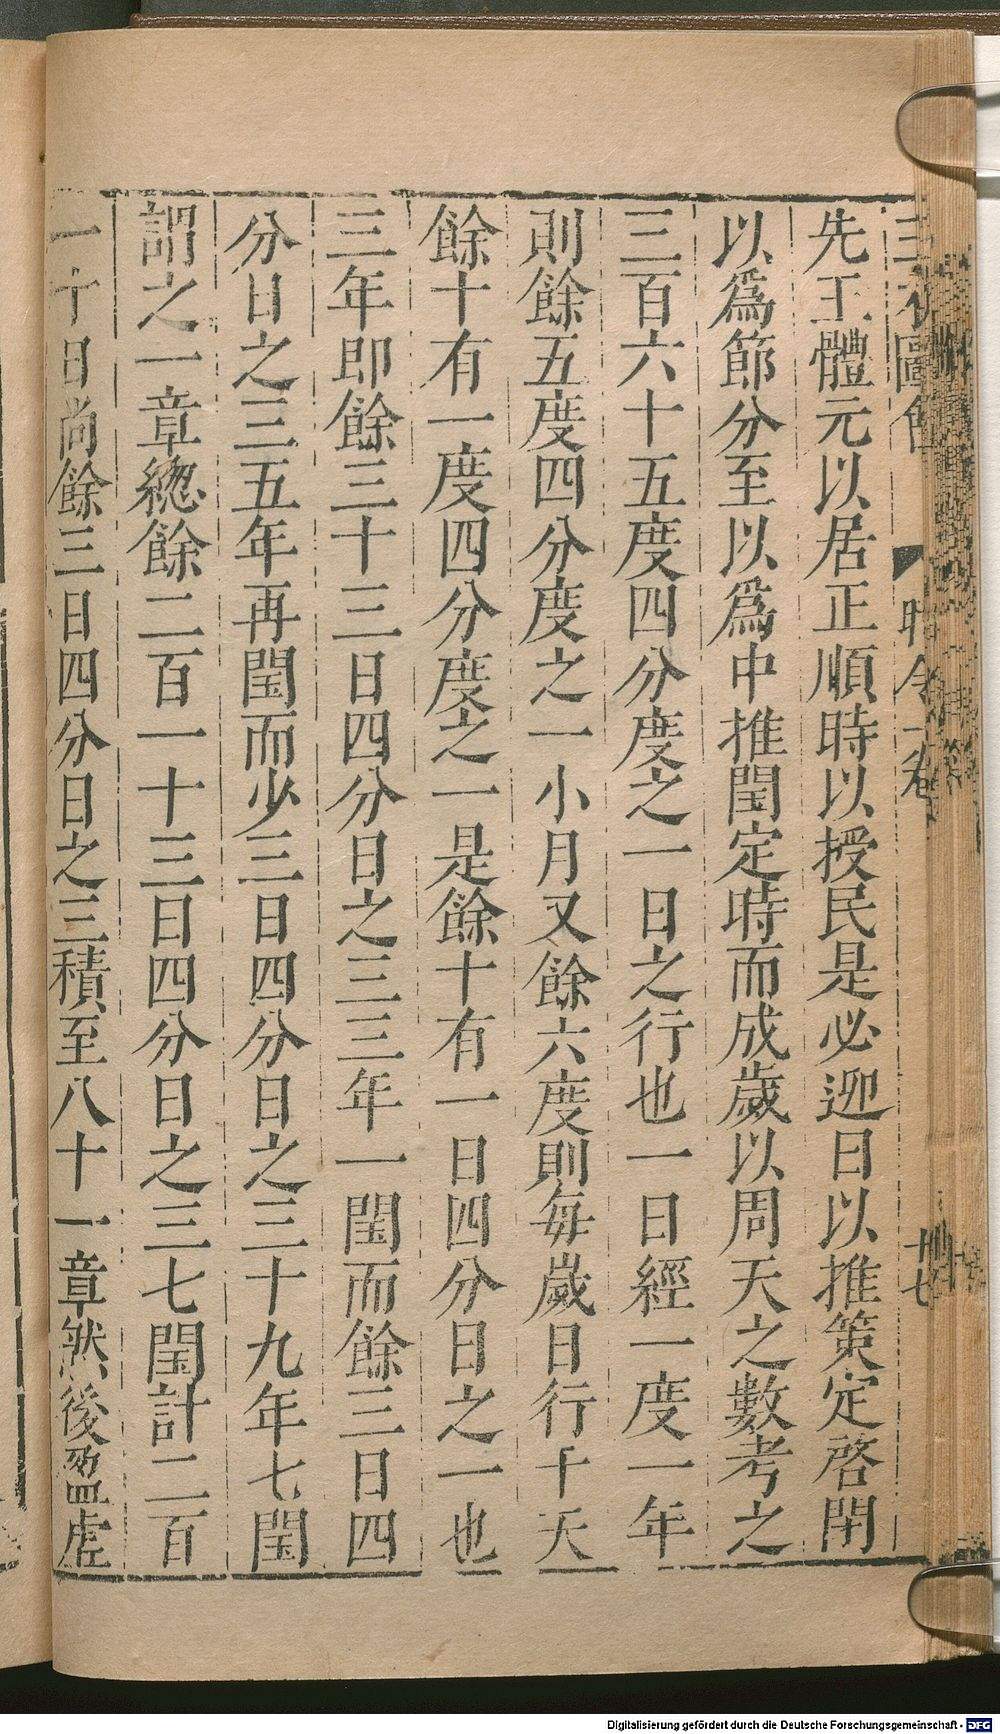 三才圖會 時令一卷 十七
先王體元以居正順時以授民是必迎日以推策定啓閉
以爲節分至以爲中推閏定時而成歲以周天之數考之
三百六十五度四分度之一日之行也一日經一度一年
則餘五度四分度之一小月又餘六度則每歲日行十天
餘十有一度四分度之一是餘十有一日四分日之一也
三年即餘三十三日四分日之三三年一閏而餘三日四
分日之三五年再閏而少三日四分日之三十九年七閏
謂之一章總餘二百一十三日四分日之三七閏計二百
一十日尚餘三日四分日之三積至八十一章然後盈虛
Digitalisierung gefördert durch die Deutsche Forschungsgemeinschaft - DFG